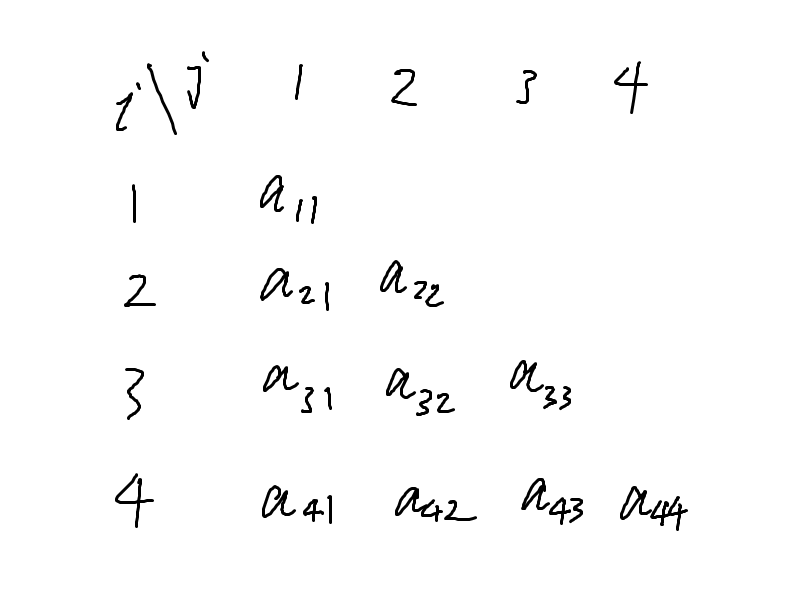 i\j 1 2 3 4
1 a₁₁
2 a₂₁ a₂₂
3 a₃₁ a₃₂ a₃₃
4 a₄₁ a₄₂ a₄₃ a₄₄